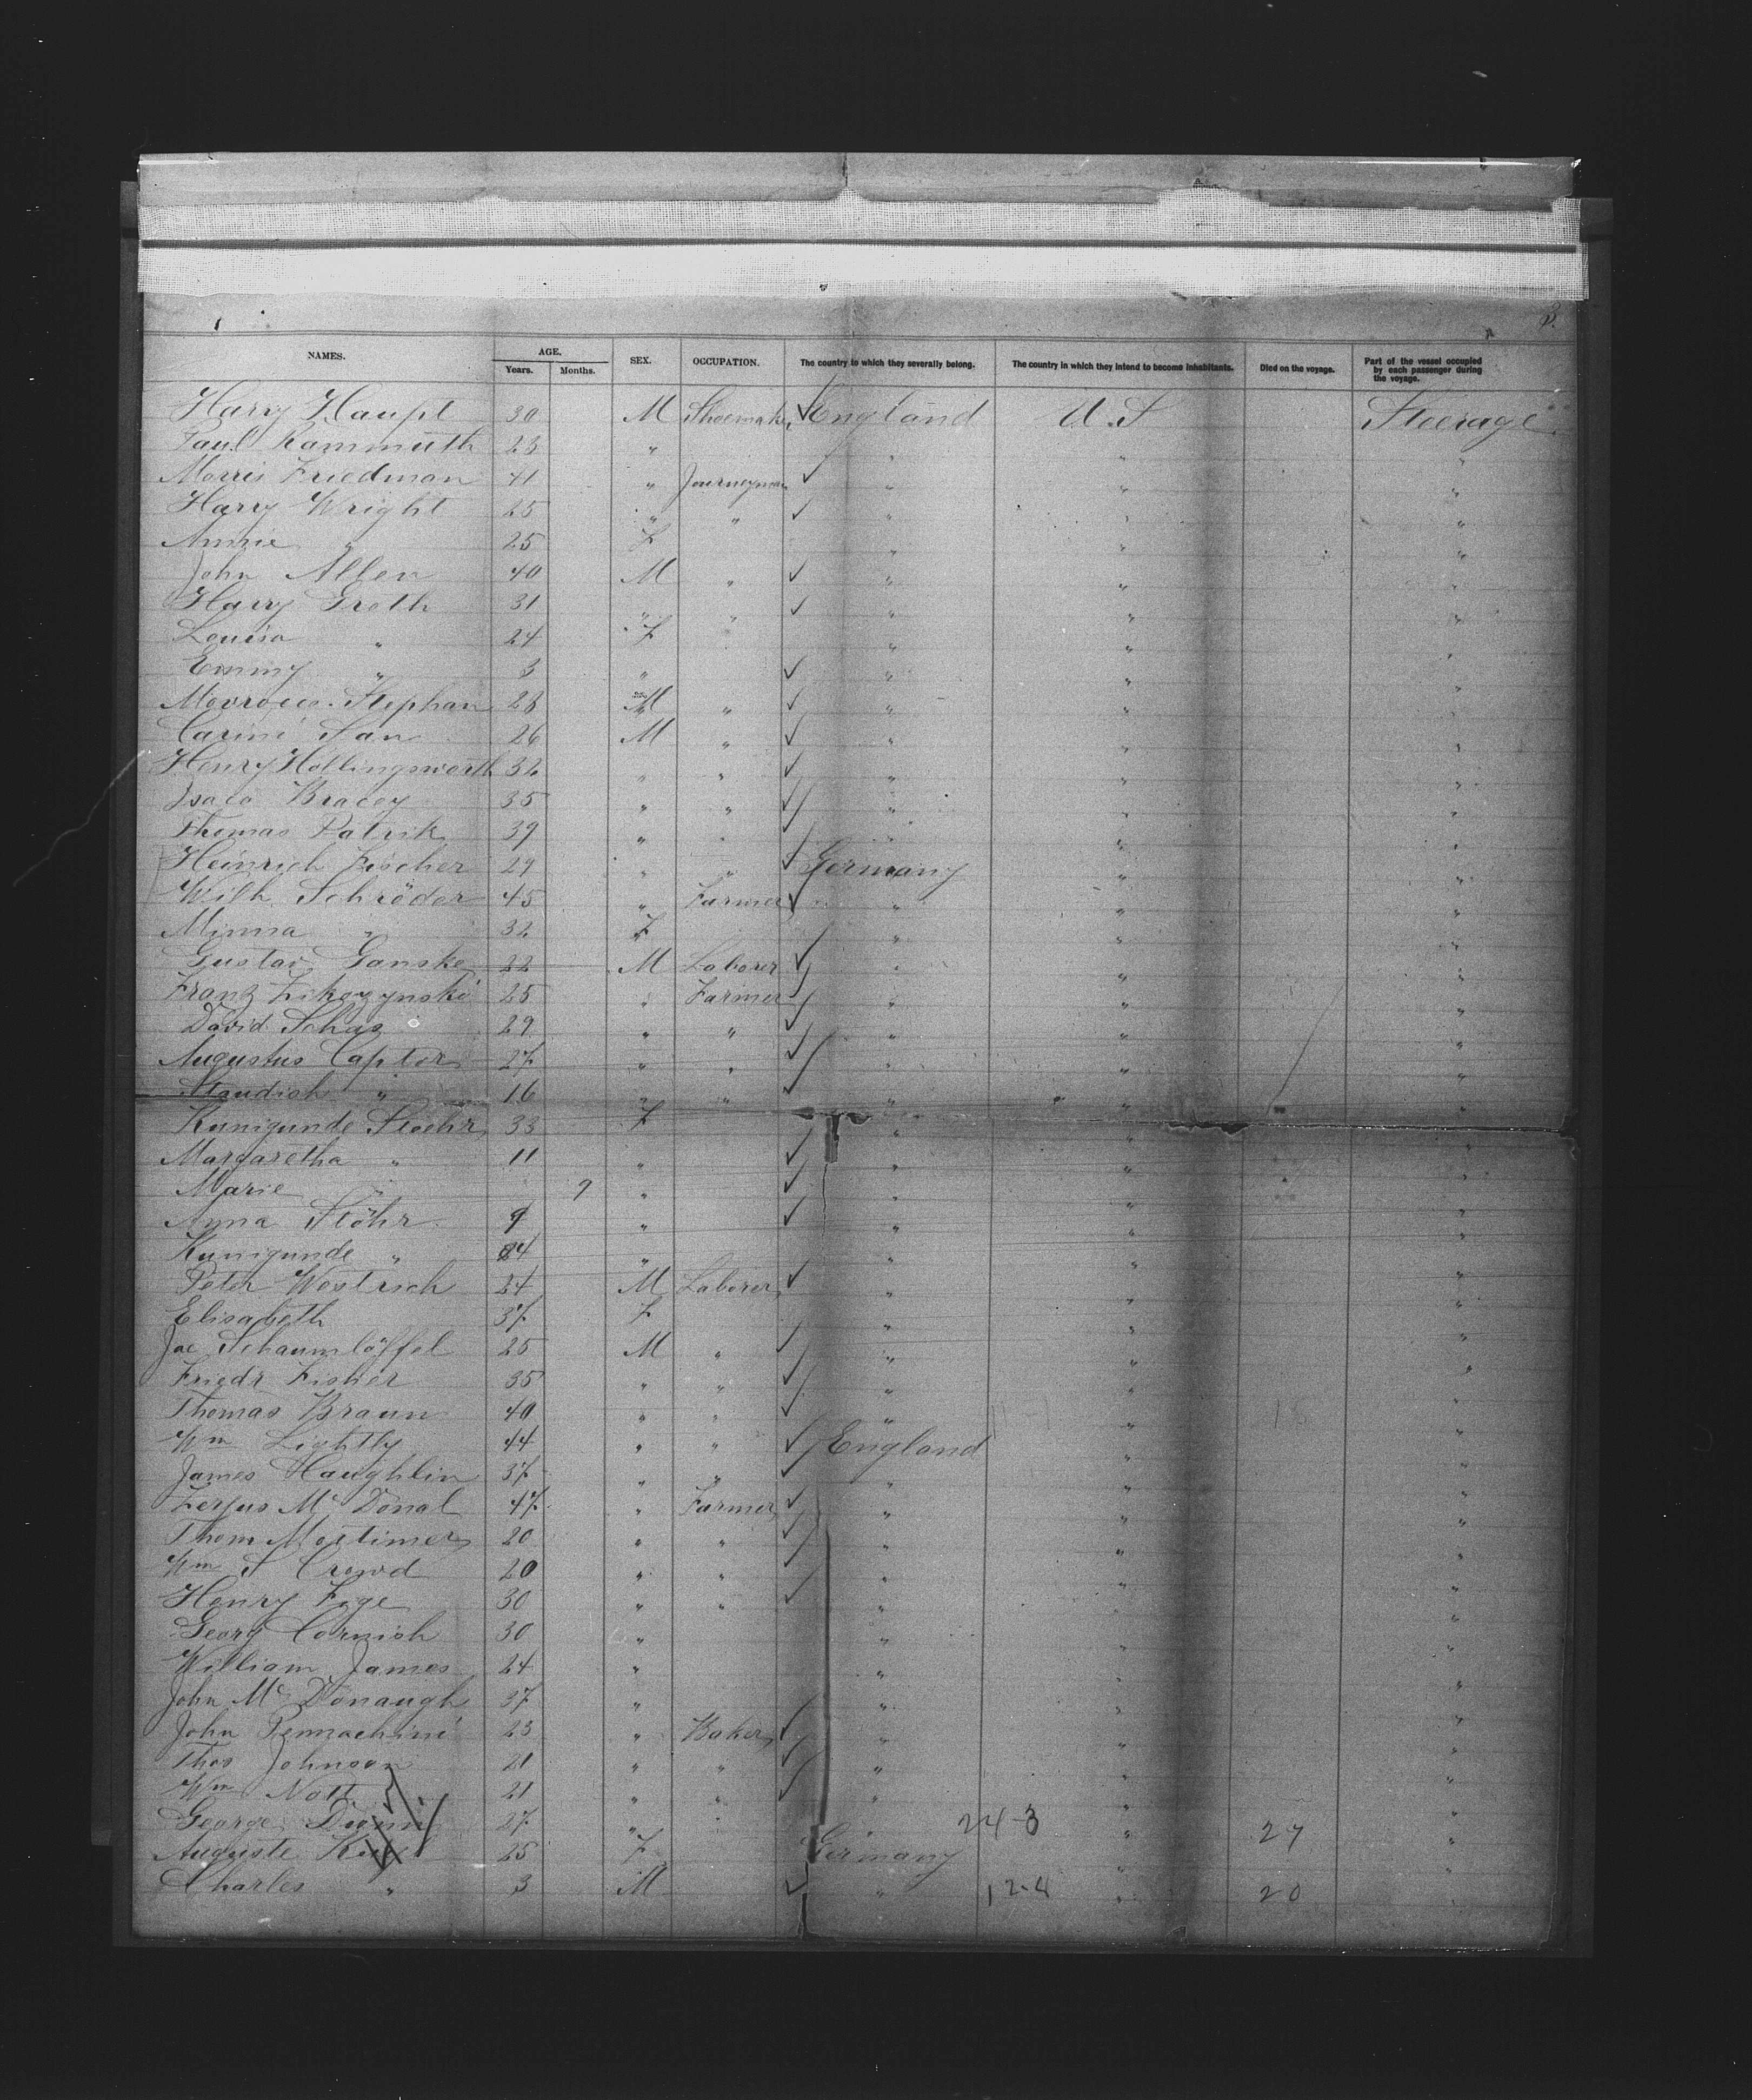 2.
NAMES. AGE. SEX. OCCUPATION. The country to which they severally belong. The country in which they intend to become inhabitants. Died on the voyage. Part of the vessel occupied by each passenger during the voyage.
Years. Months.
Harry Haupt 30 M Shoemaker ✓ England U.S Steerage
Paul Kammuth 23 " " " "
Morris Friedman 41 " Journeyman ✓ " " "
Harry Wright 25 " " ✓ " " "
Annie " 25 F " " "
John Allen 40 M " ✓ " " "
Harry Groth 31 " " ✓ " " "
Louisa " 24 F " " "
Emmy " 3 " ✓ " " "
Stephan 28 M " ✓ " " "
Carini San 26 M " ✓ " " "
Henry Hollingsworth 32 " " ✓ " " "
Isaca Bracey 35 " " ✓ " " "
Thomas Patrik 39 " " ✓ " " "
Heinrich Fischer 29 " " ✓ Germany " "
Wilh. Schröder 45 " Farmer ✓ " " "
Minna " 32 F " " "
Gustav Ganske 22 M Laborer ✓ " " "
Franz 25 " Farmer ✓ " " "
David Schaz 29 " " ✓ " " "
Augustus Captor 27 " " ✓ " " "
" 16 " " ✓ " " "
Kunigunde Stoehr 33 F " " "
Margaretha " 11 " ✓ " " "
Marie " 9 " ✓ " " "
Anna Stöhr 9 " ✓ " " "
Kunigunde " " " " "
Peter Westrich 24 M Laborer ✓ " " "
Elisabeth 37 F " " "
Jac Schaumlöffel 25 M " ✓ " " "
Friedr Fisher 35 " " ✓ " " "
Thomas Braun 40 " " ✓ " " "
Wm Lightly 44 " " ✓ England " "
James Haughlin 37 " " ✓ " " "
Mc Donal 47 " Farmer ✓ " " "
Thom Mortimer 20 " " ✓ " " "
Wm S Crowd 20 " " ✓ " " "
Henry Foge 30 " " ✓ " " "
Georg Cornish 30 " " " "
William James 24 " " " "
John Mc Donaugh 37 " " " "
John Pennachini 23 " Baker ✓ " " "
Thos Johnson 21 " " ✓ " " "
Wm Nott 21 " " ✓ " " "
George 27 " " " 24-3 " 27 "
Auguste 25 F Germany " "
Charles " 3 M ✓ " 12-4 " 20 "